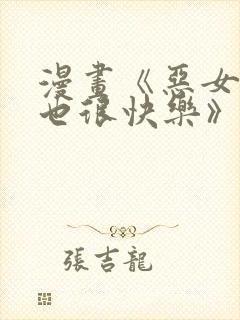 漫畫《惡女
也很快樂》
張吉龍